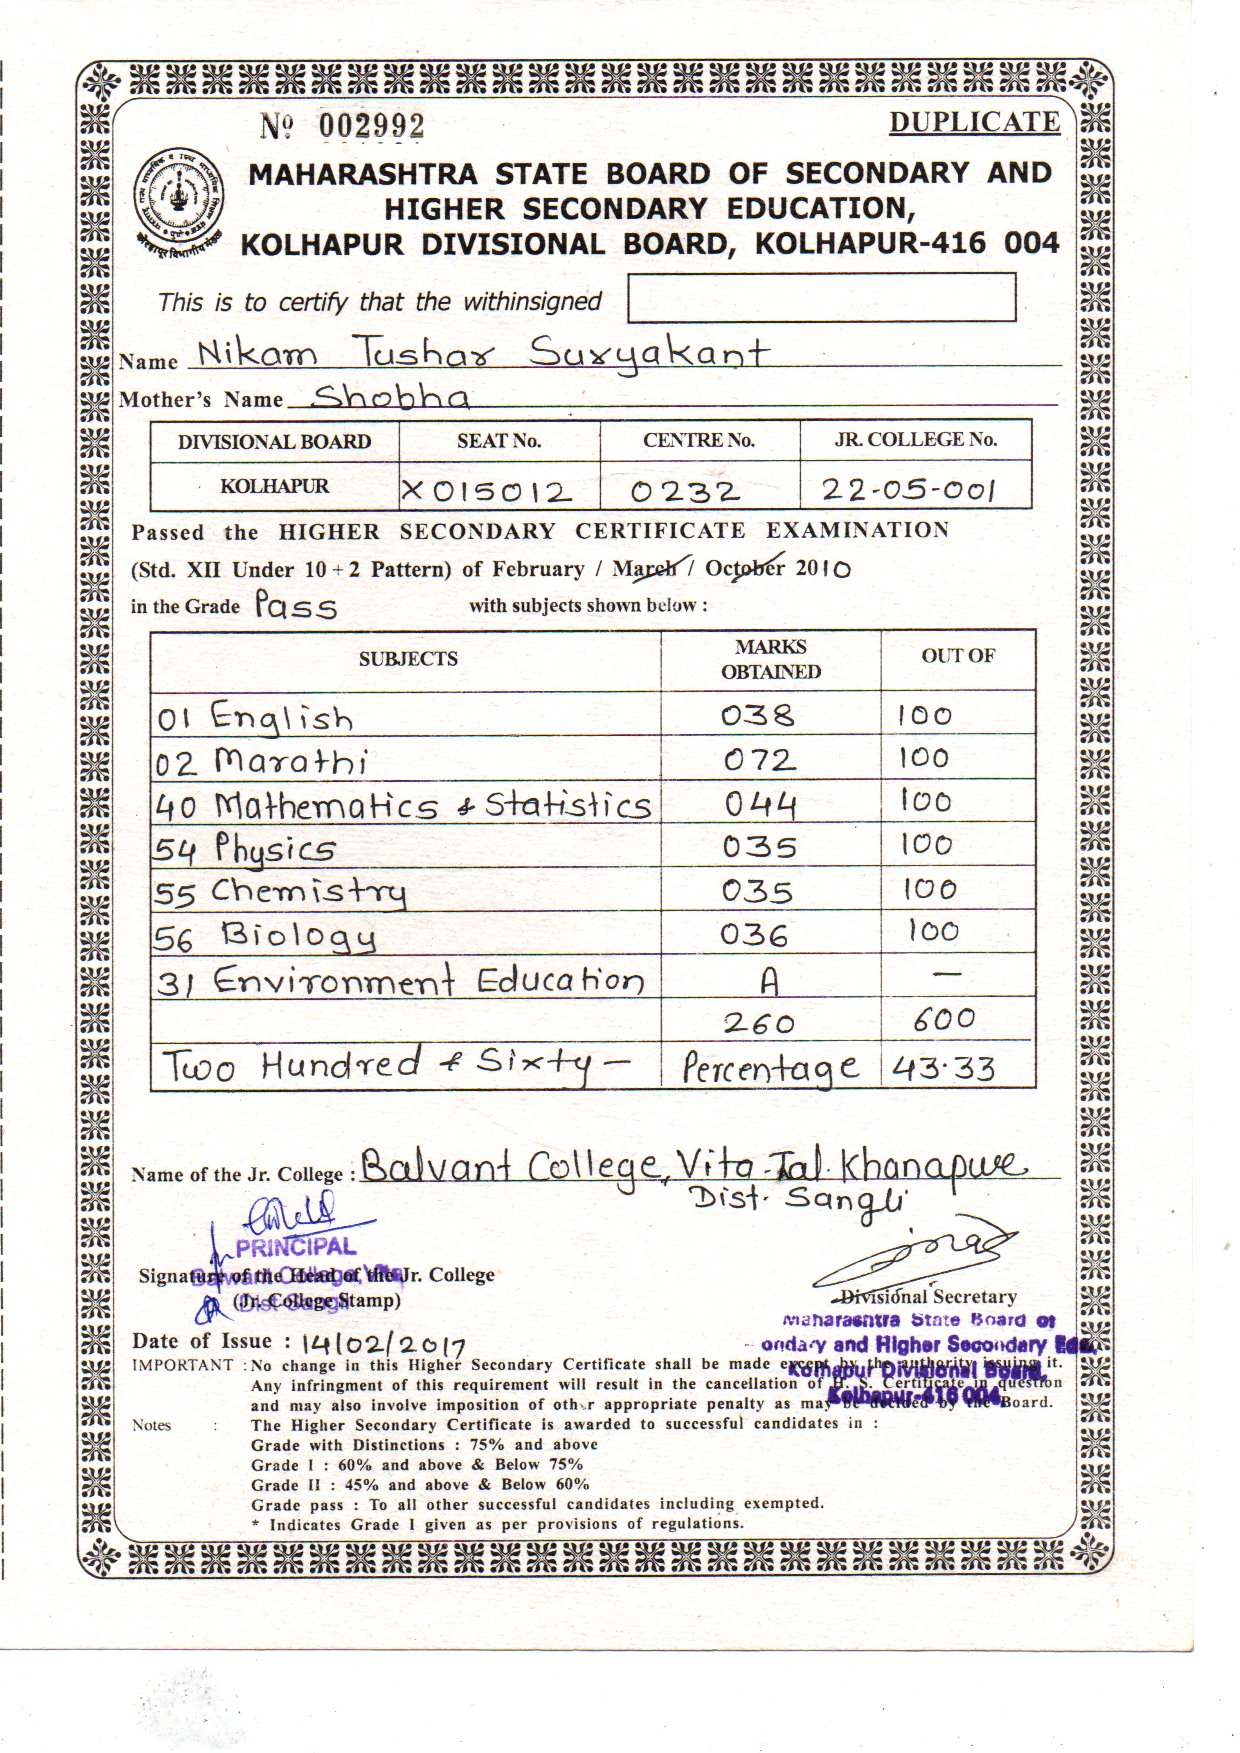 Nº 002992
DUPLICATE
MAHARASHTRA STATE BOARD OF SECONDARY AND
HIGHER SECONDARY EDUCATION,
KOLHAPUR DIVISIONAL BOARD, KOLHAPUR-416 004
This is to certify that the withinsigned
Name Nikam Tushar Suryakant
Mother's Name Shobha
DIVISIONAL BOARD SEAT No. CENTRE No. JR. COLLEGE No.
KOLHAPUR X015012 0232 22-05-001
Passed the HIGHER SECONDARY CERTIFICATE EXAMINATION
(Std. XII Under 10+2 Pattern) of February / March / October 2010
in the Grade Pass with subjects shown below :
SUBJECTS MARKS OBTAINED OUT OF
01 English 038 100
02 Marathi 072 100
40 Mathematics & Statistics 044 100
54 Physics 035 100
55 Chemistry 035 100
56 Biology 036 100
31 Environment Education A —
260 600
Two Hundred & Sixty — Percentage 43.33
Name of the Jr. College : Balvant College, Vita-Tal. Khanapur
Dist. Sangli
PRINCIPAL
Balvant College, Vita
Dist-Sangli
Signature of the Head of the Jr. College
(Jr. College Stamp)
Divisional Secretary
Maharashtra State Board of
ondary and Higher Secondary Edu.
Kolhapur Divisional Board,
Kolhapur-416 004
Date of Issue : 14/02/2017
IMPORTANT : No change in this Higher Secondary Certificate shall be made except by the authority issuing it.
Any infringment of this requirement will result in the cancellation of H. S. Certificate in question
and may also involve imposition of other appropriate penalty as may be decided by the Board.
Notes : The Higher Secondary Certificate is awarded to successful candidates in :
Grade with Distinctions : 75% and above
Grade I : 60% and above & Below 75%
Grade II : 45% and above & Below 60%
Grade pass : To all other successful candidates including exempted.
* Indicates Grade I given as per provisions of regulations.